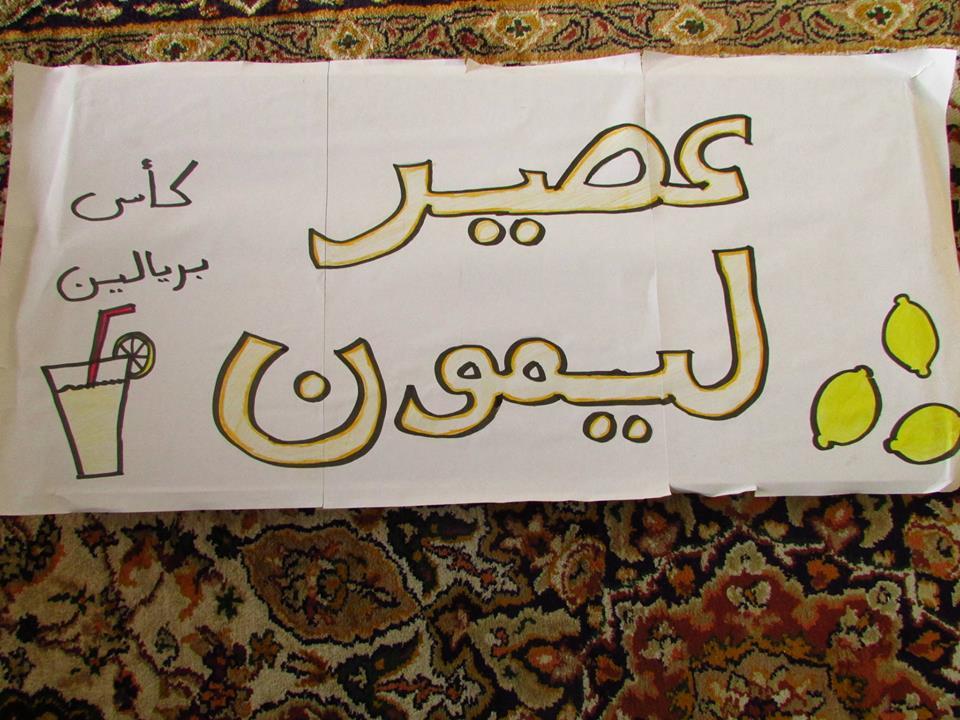 عصير
ليمون
كأس
بريالين